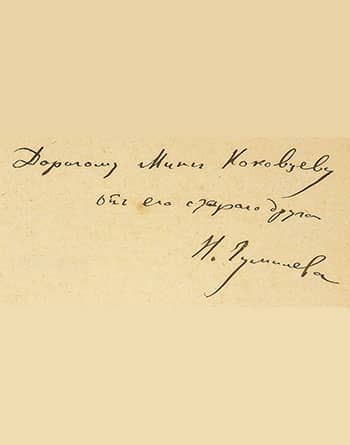 Дорогому Мите Коковцеву
от его старого друга
Н. Гумилева